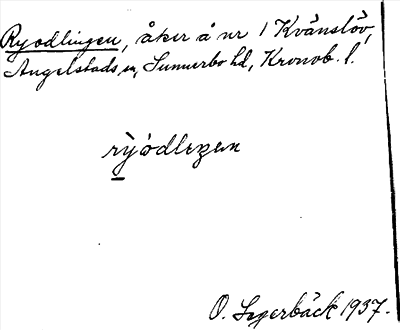 Ryodlingen, åker å nr 1 Kvänslöv,
Angelstads sn, Sunnerbo hd, Kronob. l.
rỳòdlıŋən
O. Segerbäck 1937.